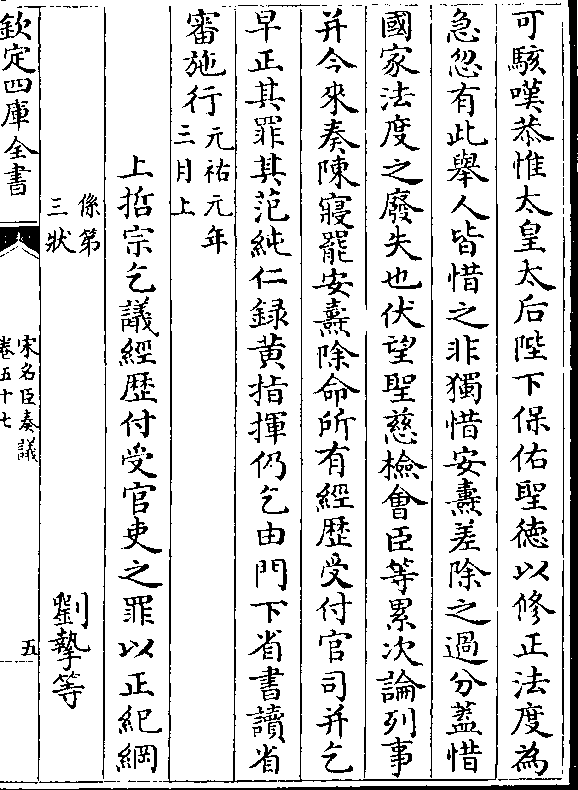 可駭嘆恭惟太皇太后陛下保佑聖德以修正法度為
急忽有此舉人皆惜之非獨惜安燾差除之過分蓋惜
國家法度之廢失也伏望聖慈檢會臣等累次論列事
并今來奏陳寢罷安燾除命所有經歴受付官司并乞
早正其罪其范純仁録黄指揮仍乞由門下省書讀省
審施行元祐元年
三月上
上哲宗乞議經歴付受官吏之罪以正紀綱
係第
三狀
劉摯等
欽定四庫全書
宋名臣奏議
卷五十七
五